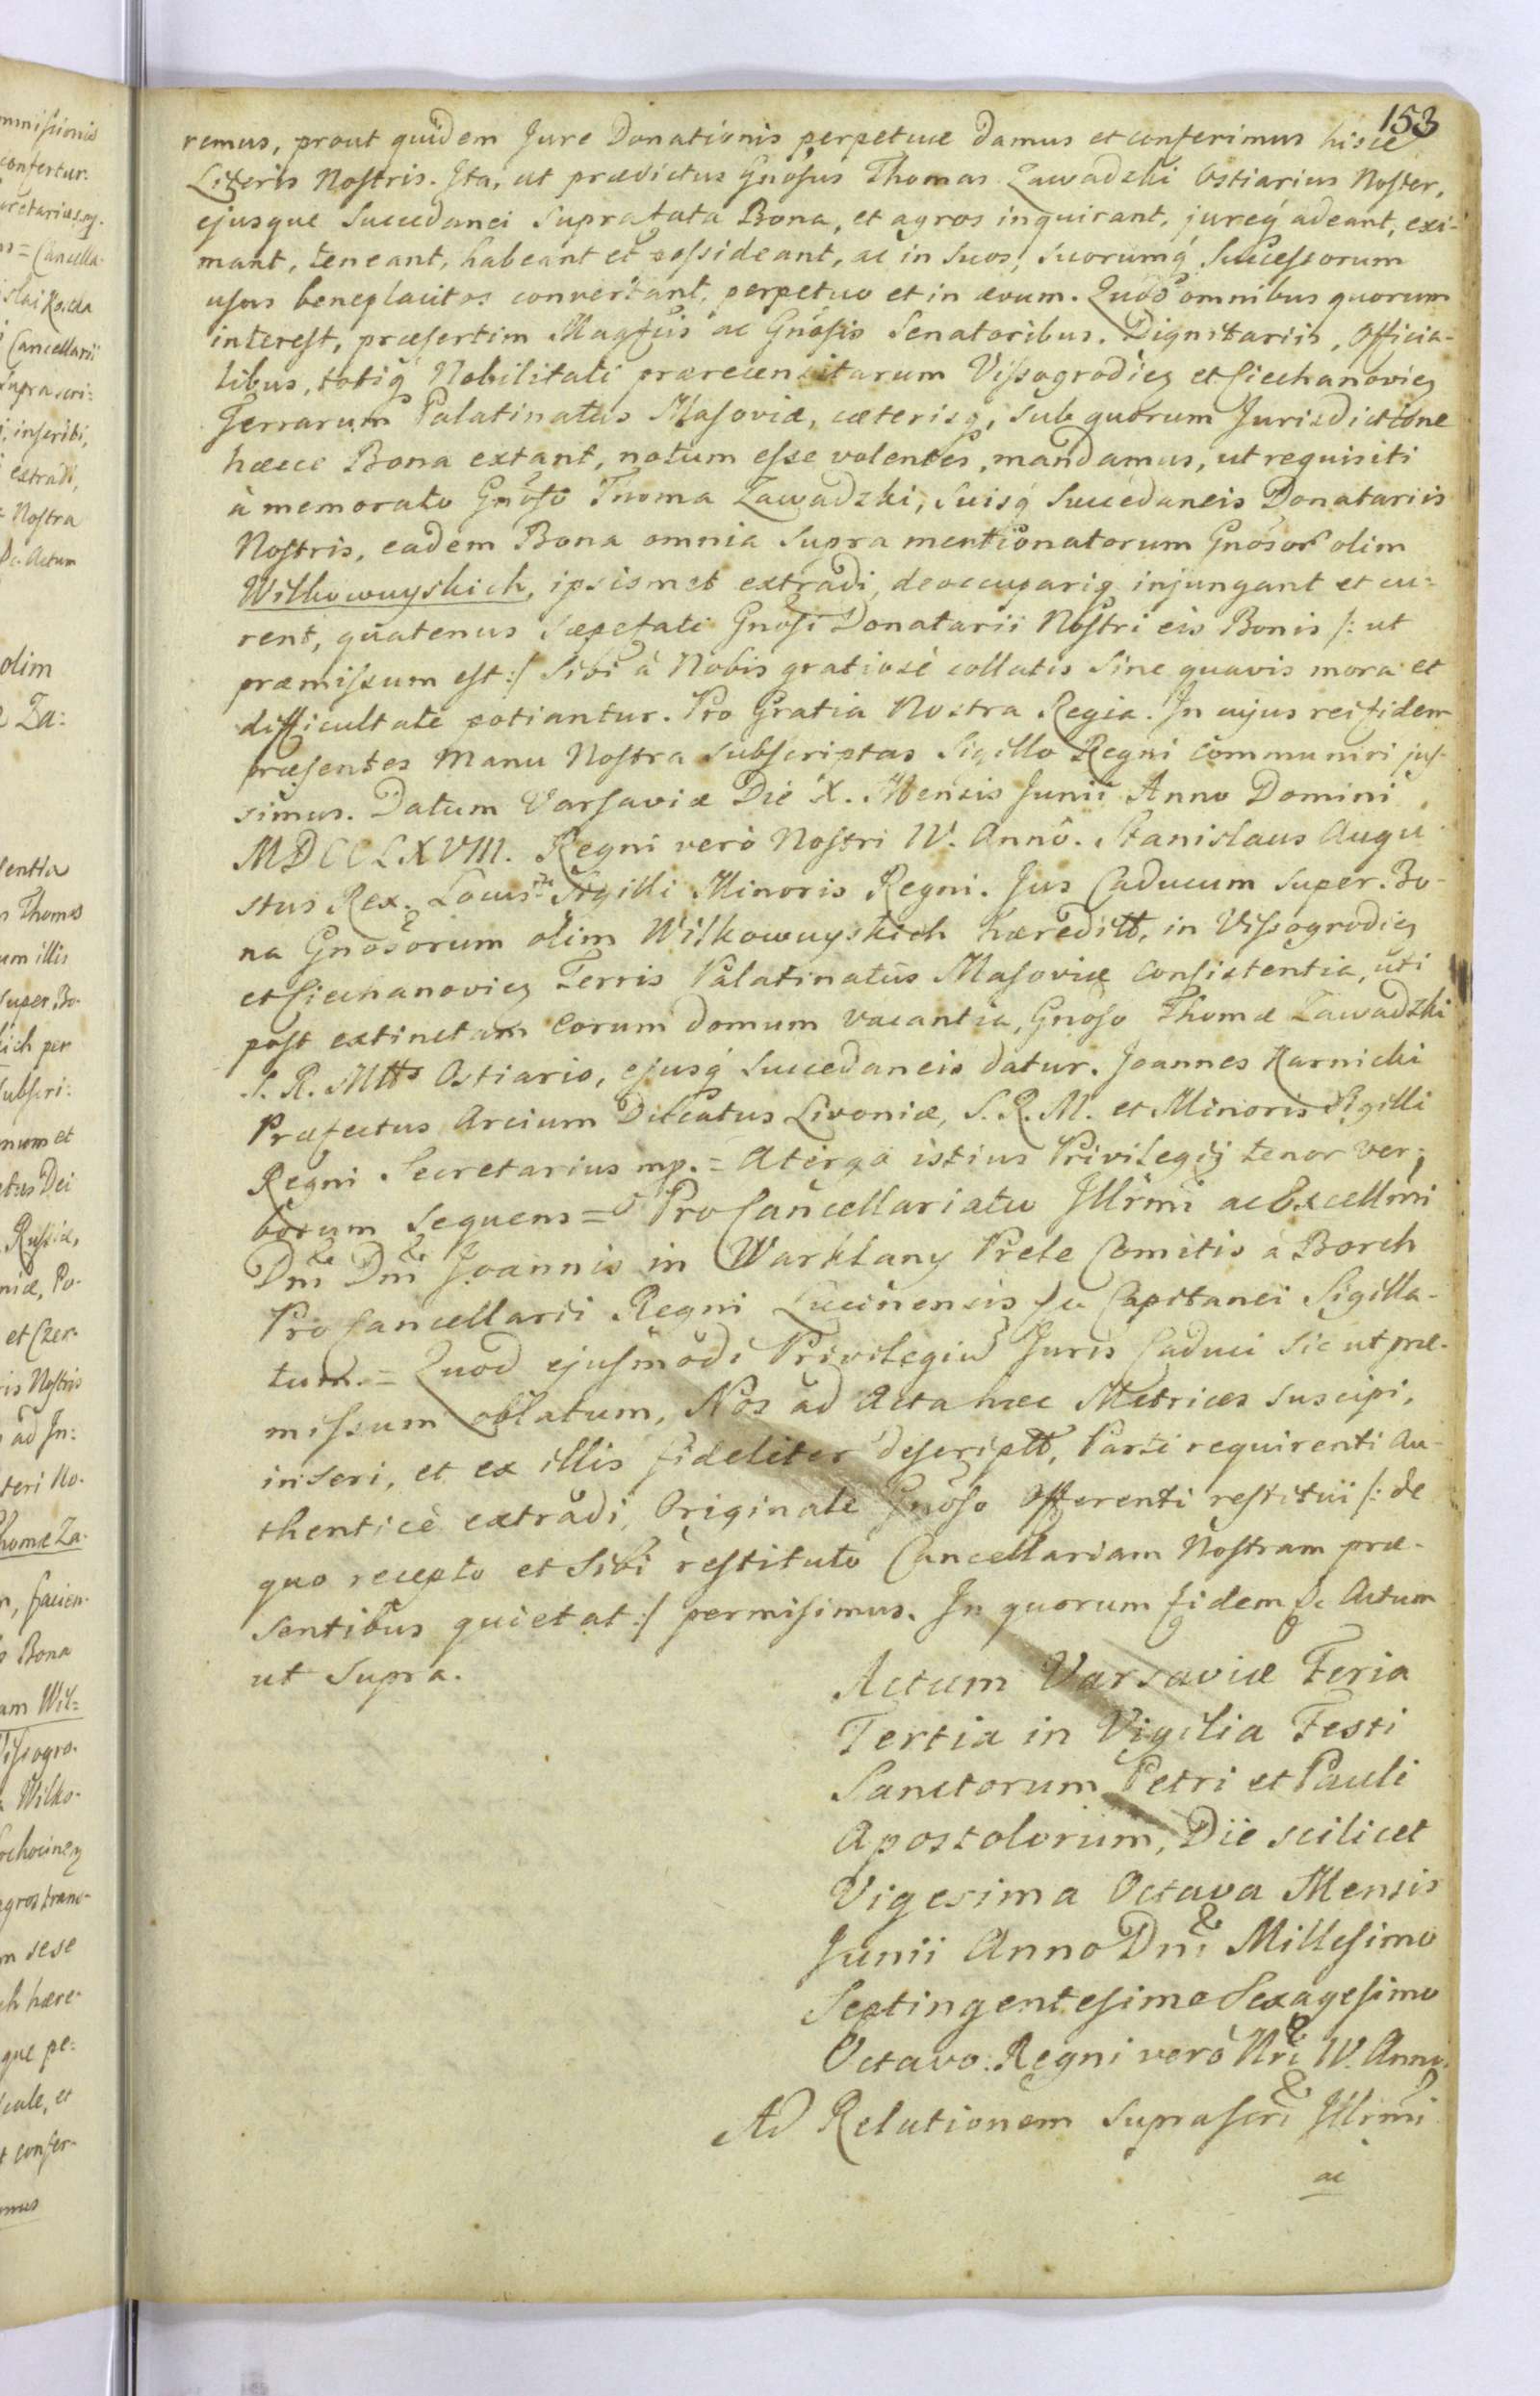 153
remus, prout quidem Jure Donationis perpetuæ damus et conferimus hisce
Literis Nostris. Ita, ut prædictus Gnosus Thomas Zawadzki Ostiarius Noster,
ejusque Succedanei Suprafata Bona, et agros inquirant, jureq́ adeant, exi-
mant, teneant, habeant et possideant, ac in Suos, Suorumq́ Successorum
usus beneplacitos convertant, perpetuo et in ævum. Quod omnibus quorum
interest, præsertim Magfcis ac Gnosis Senatoribus. Dignitariis, Officia-
libus, totiq́ Nobilitati præcensitarum Vissogrodien et Ciechanovien
Terrarum Palatinatus Masoviæ, cæterisq́, sub quorum Jurisdictione
hæcce Bona extant, notum esse volentes, mandamus, ut requisiti
à memorato Gnoso Thoma Zawadzki, Suisq́ Succedaneis Donatariis
Nostris, eadem Bona omnia Supra mentionatorum Gnosor olim
Wilkowuyskich, ipsismet extradi, deoccupariq́ injungant et cu=
rent, quatenus Sæpefati Gnosi Donatarii Nostri eis Bonis /: ut
præmissum est :/ Sibi à Nobis gratiosè collatis Sine quavis mora et
difficultate potiantur. Pro Gratia Nostra Regia. In cujus rei fidem
præsentes Manu Nostra Subscriptas Sigillo Regni communiri jus-
simus. Datum Varsaviæ Die X. Mensis Junii Anno Domini
MDCCLXVIII. Regni verò Nostri IV. Anno. Stanislaus Augu
stus Rex. Locus Sigilli Minoris Regni. Jus Caducum Super Bo-
na Gnosorum olim Wilkowuyskich hæreditt, in Vissogrodien
et Ciechanovien Terris Palatinatûs Masoviæ Consistentia, uti
post extinctam eorum domum vacantia, Gnoso Thomæ Zawadzki
S. R. Mtts Ostiario, ejusq́ Succedaneis datur. Joannes Karnicki
Præfectus Arcium Ducatus Livoniæ, S. R. M. et Minoris Sigilli
Regni Secretarius mp. = Atergo istius Privilegij tenor ver,
borum Sequens = Pro Cancellariatu Jllrmi ac Excellmi
Dni Dni Joannis in Warklany Prele Comitis à Borch
Pro Cancellarii Regni Lucinensis &c Capitanei Sigilla-
tum. = Quod ejusmodi Privilegiu Juris Caduci Sic ut præ-
missum oblatum, Nos ad Acta hæc Metrices Suscipi,
inseri, et ex illis fideliter descriptt, Parti requirenti Au-
thenticè extradi, Originale Gnoso Offerenti restitui /: de
quo recepto et Sibi restituto Cancellariam Nostram præ-
sentibus quietat :/ permisimus. In quorum fidem &c Actum
ut Supra.
Actum Varsaviæ Feria
Tertia in Vigilia Festi
Sanctorum Petri et Pauli
Apostolorum, Die scilicet
Vigesima Octava Mensis
Junii Anno Dni Millesimo
Septingentesimo Sexagesimo
Octavo. Regni verò Nri IV. Anno.
Ad Relationem Suprascri Jllrmi
ac